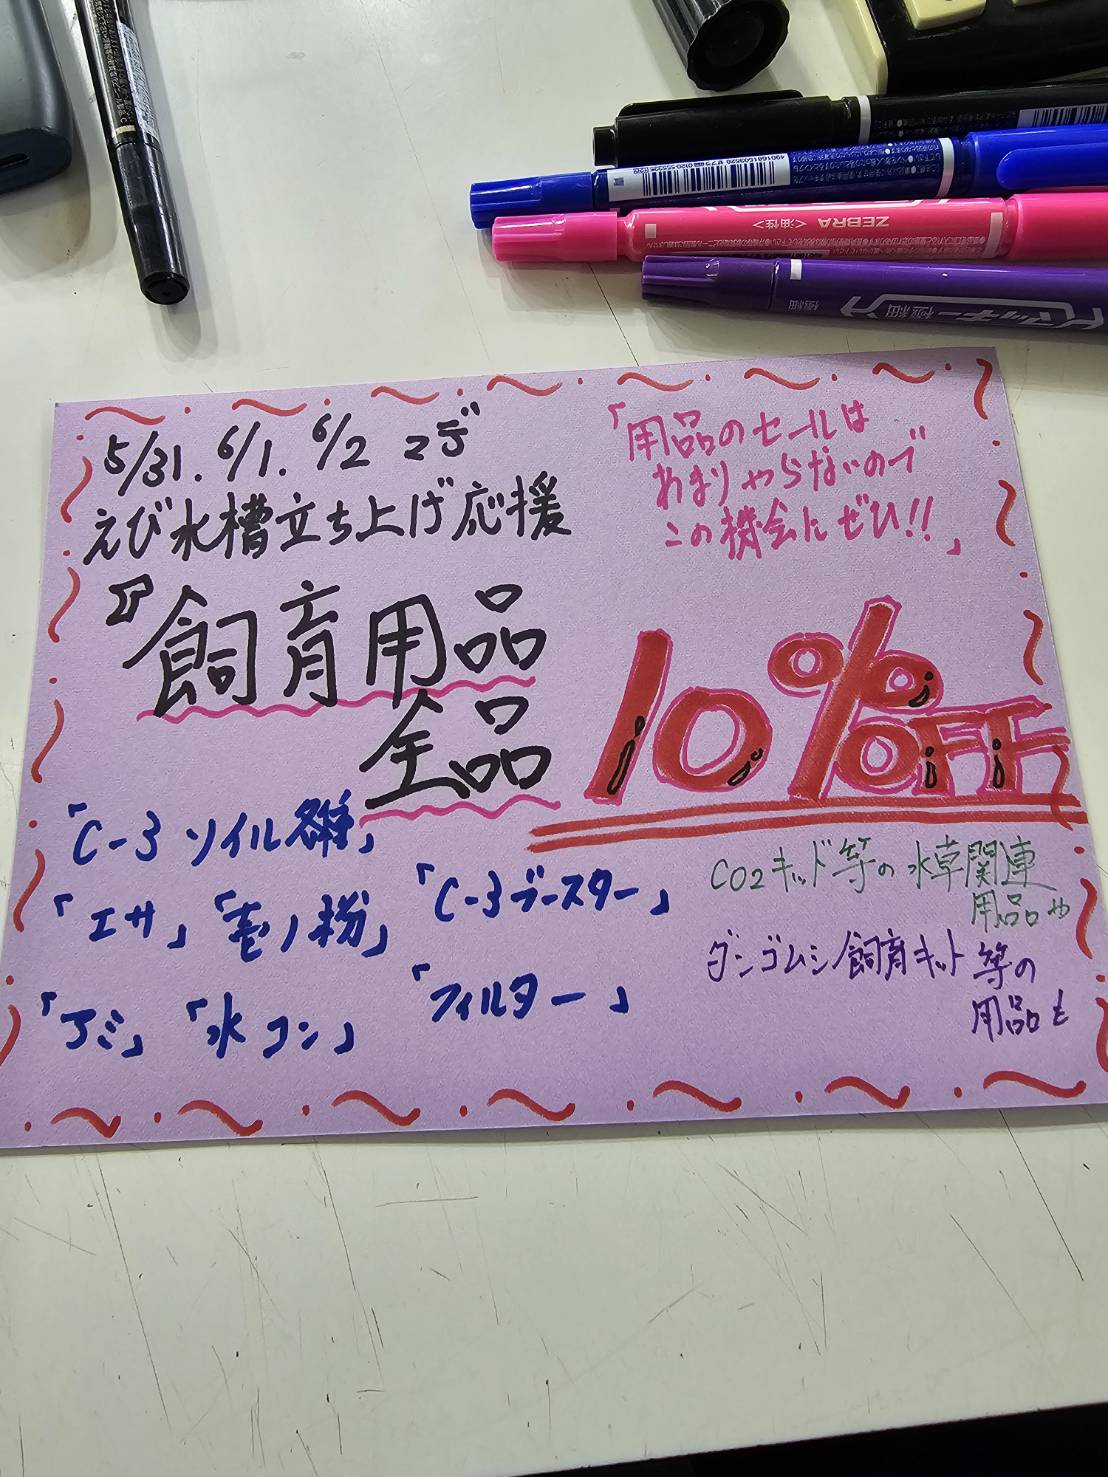 5/31. 6/1. 6/2 マデ
えび水槽立ち上げ応援
飼育用品
全品
「用品のセールは
あまりやらないので
この機会にぜひ!!」
10%OFF
「C-3 ソイル各種」
「エサ」「壱ノ粉」「C-3ブースター」
「アミ」「水コン」「フィルター」
CO2キッド等の水草関連
用品や
ダンゴムシ飼育キット等の
用品も
ZEBRA
<油性>
マッキー極細
極細